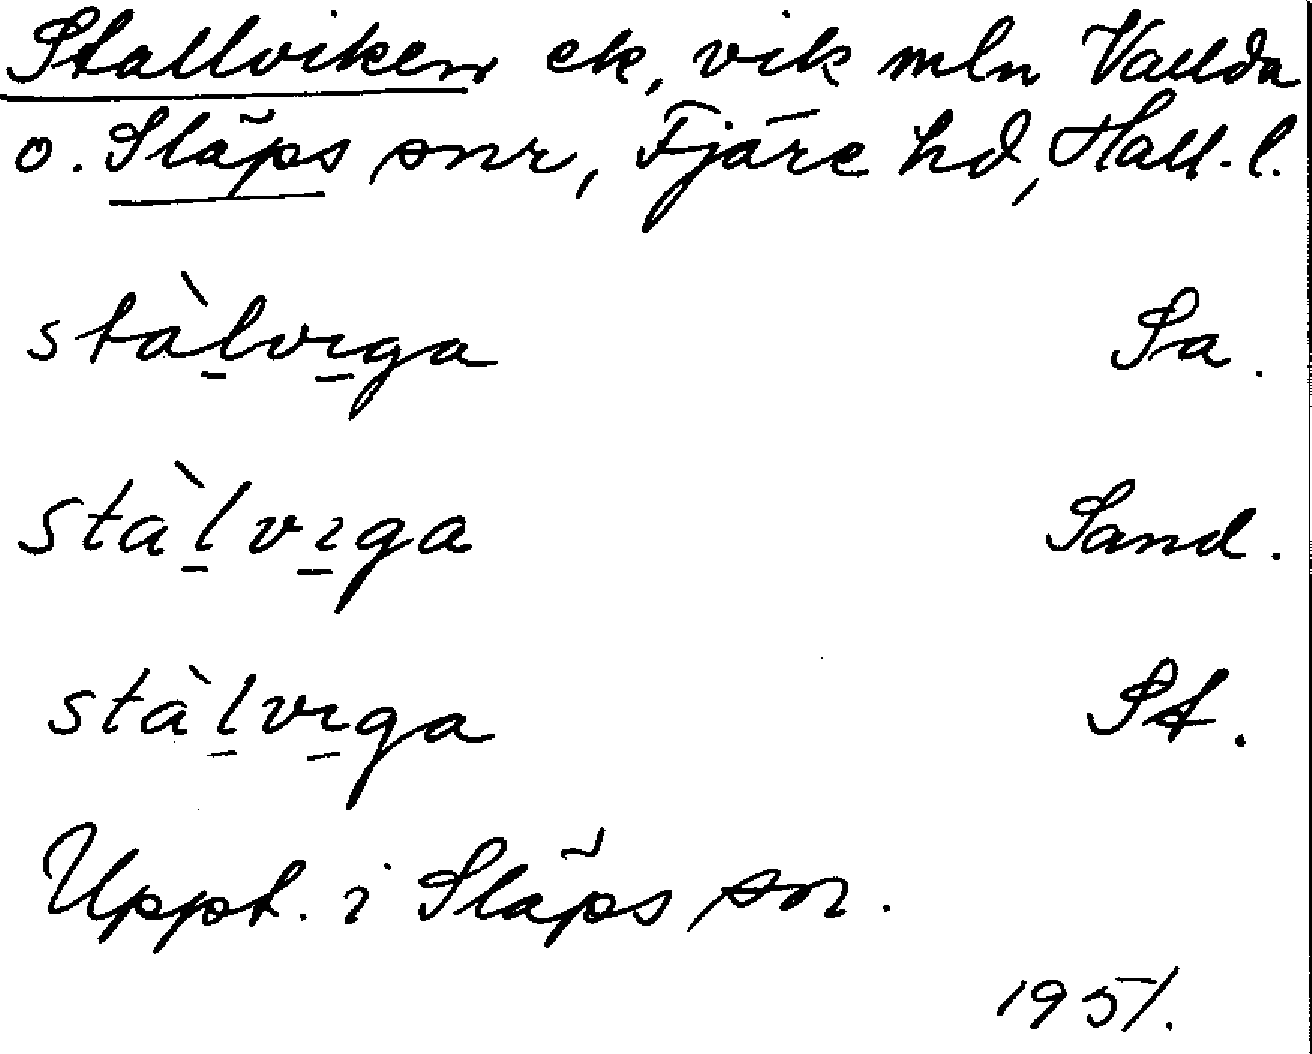 Stallviken ek, vik mln Vallda
o. Släps snr, Fjäre hd, Hall. l.
stàlvıga Sa.
stàlvıga Sand.
stàlvıga St.
Uppt. i Släps sn.
1951.